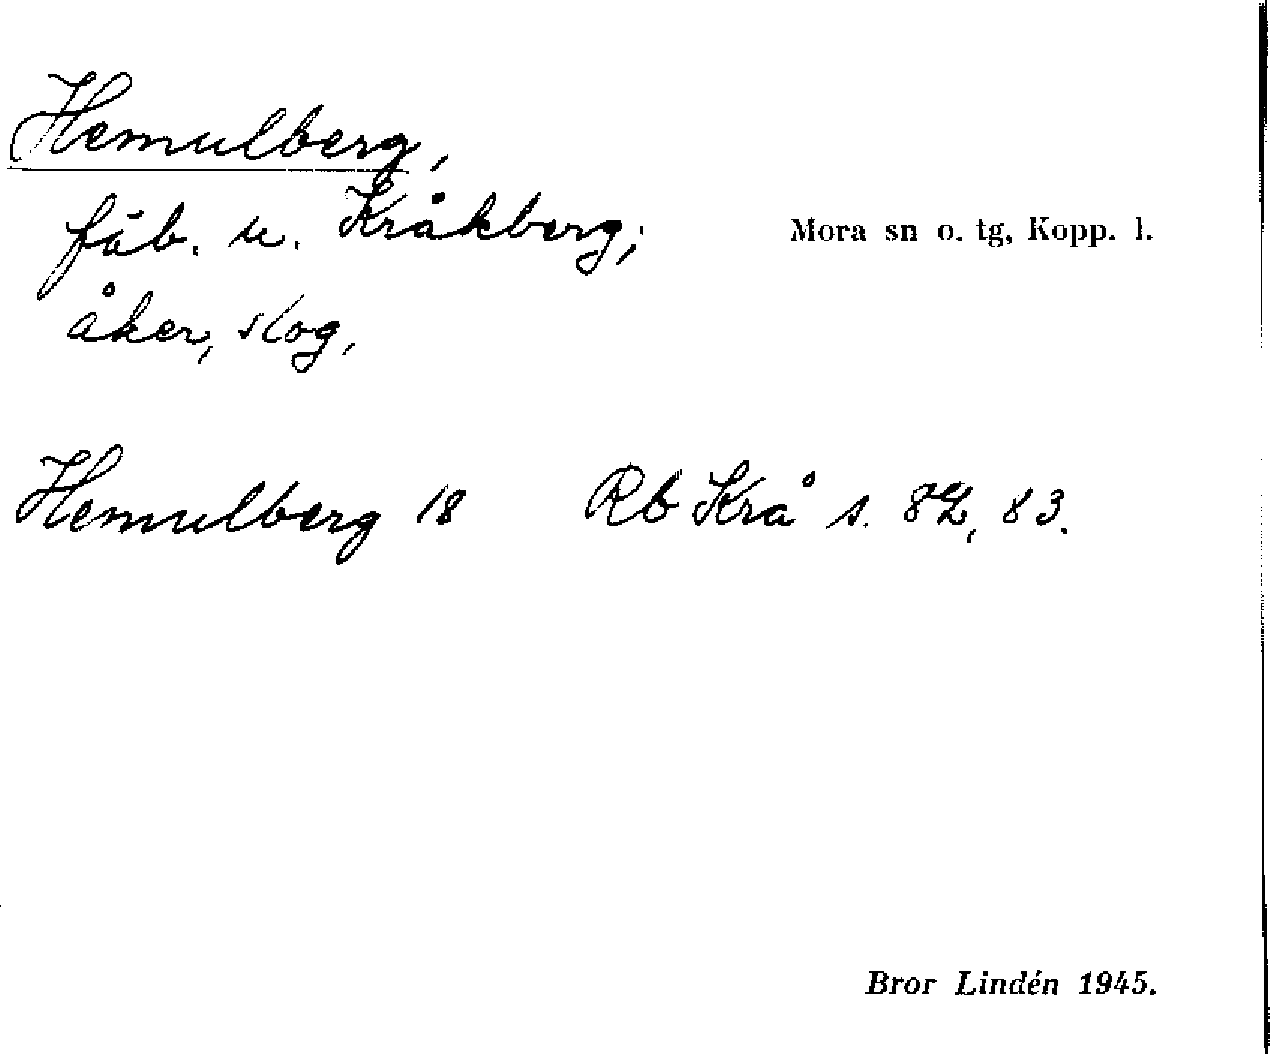 Hemulberg,
fäb. u. Kråkberg;
Mora sn o. tg, Kopp. l.
åker, skog,
Hemulberg 18 Rb Krå s. 82, 83.
Bror Lindén 1945.